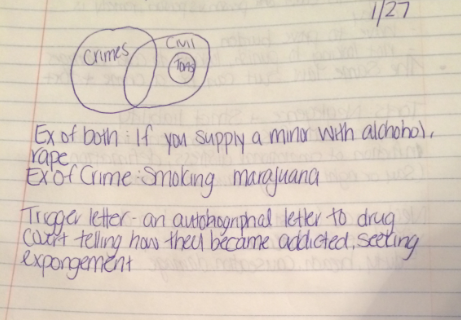 1/27
Crimes
Civil
Torts
Ex of both: If you supply a minor with alchohol,
rape
Ex of Crime: Smoking marajuana
Trigger letter - an autobiographal letter to drug
court telling how they became addicted, seeking
expongement